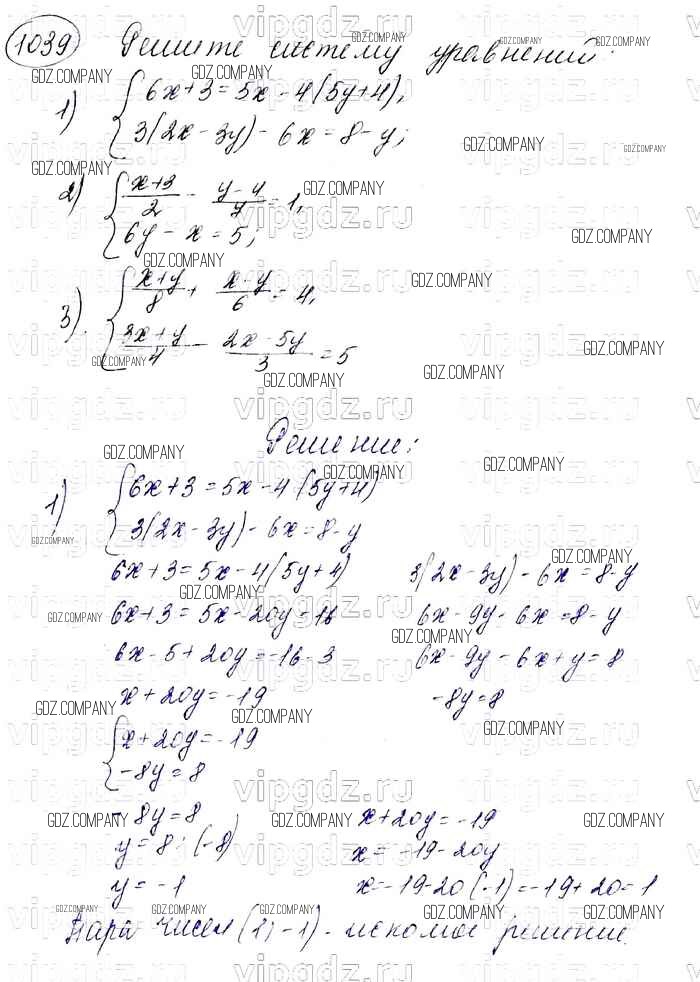 1039 Решите систему уравнений:
1) { 6x+3=5x-4(5y+4),
3(2x-3y)-6x=8-y;
2) { (x+3)/2 - (y-4)/7 = 1,
6y-x=5;
3) { (x+y)/8 + (x-y)/6 = 4,
(3x+y)/4 - (2x-5y)/3 = 5
Решение:
1) { 6x+3=5x-4(5y+4)
3(2x-3y)-6x=8-y
6x+3=5x-4(5y+4) 3(2x-3y)-6x=8-y
6x+3=5x-20y-16 6x-9y-6x=8-y
6x-5+20y=-16-3 6x-9y-6x+y=8
x+20y=-19 -8y=8
{ x+20y=-19
-8y=8
-8y=8 x+20y=-19
y=8:(-8) x=-19-20y
y=-1 x=-19-20(-1)=-19+20=1
Пара чисел (1;-1) - искомое решение.
GDZ.COMPANY
vipgdz.ru